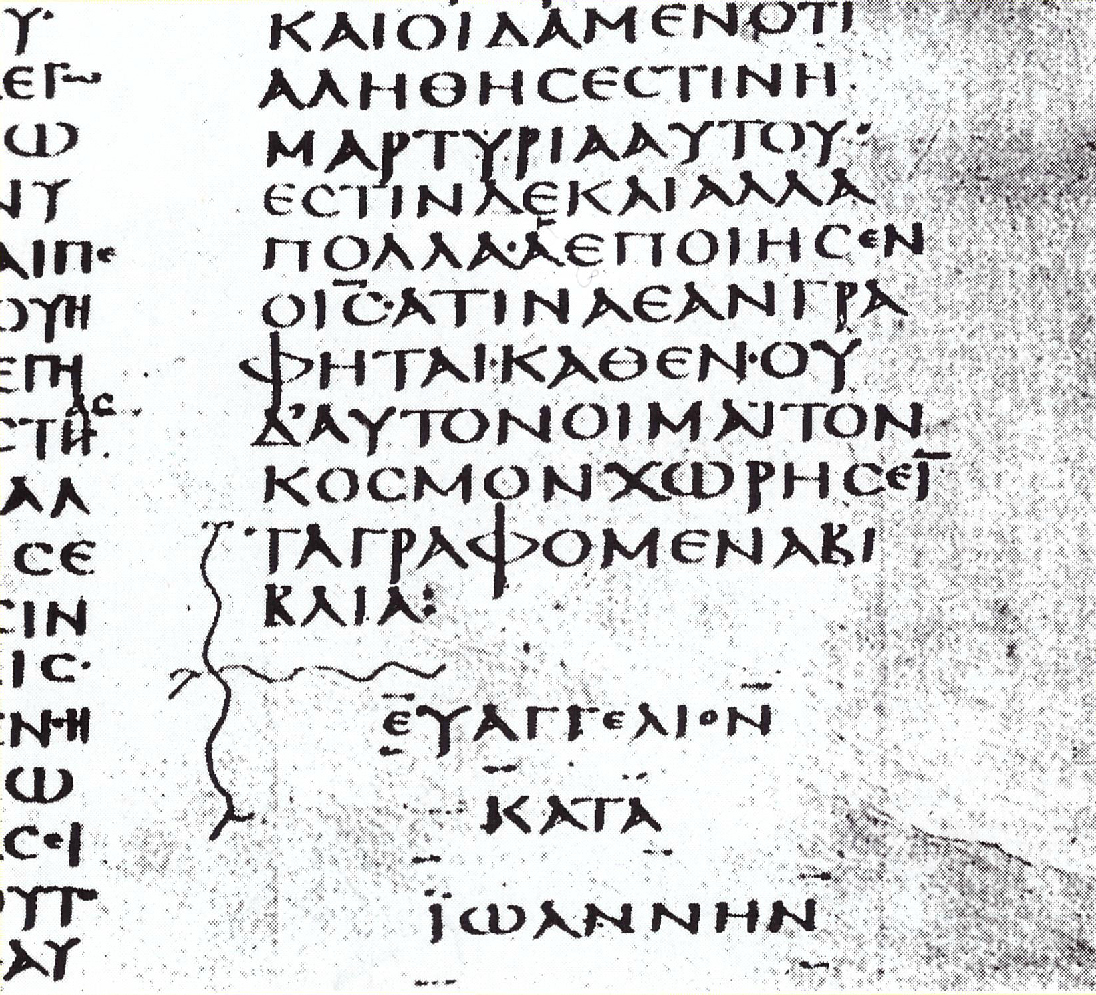 Υ·
ΕΓ
Ω
ΝΥ
ΑΙΠΕ
ΟΥΗ
ΕΠΗ
ΑϹ
ϹΤΗ
ΑΛ
ϹΕ
ϹΙΝ
ΙϹ·
ΕΝΗ
Ω
ϹΕΙ
ΟΥΤ
ΑΥ
ΚΑΙΟΙΔΑΜΕΝΟΤΙ
ΑΛΗΘΗϹΕϹΤΙΝΗ
ΜΑΡΤΥΡΙΑΑΥΤΟΥ·
ΕϹΤΙΝΔΕΚΑΙΑΛΛΑ
ΠΟΛΛΑ·ΑΕΠΟΙΗϹΕΝ
ΟΙϹ̅·ΑΤΙΝΑΕΑΝΓΡΑ
ΦΗΤΑΙ·ΚΑΘΕΝ·ΟΥ
Δ’ΑΥΤΟΝΟΙΜΑΙΤΟΝ
ΚΟϹΜΟΝΧΩΡΗϹΕΙ̅
ΤΑΓΡΑΦΟΜΕΝΑΒΙ
ΒΛΙΑ:
ΕΥΑΓΓΕΛΙΟΝ
ΚΑΤΑ
ΪΩΑΝΝΗΝ